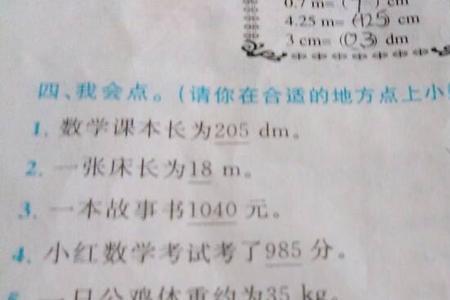 4.25 m=(425) cm
3 cm=(0.3) dm
四、我会点。(请你在合适的地方点上小
1. 数学课本长为205 dm。
2. 一张床长为18 m。
3. 一本故事书1040 元。
4. 小红数学考试考了985 分。
一只公鸡体重约为35 kg。